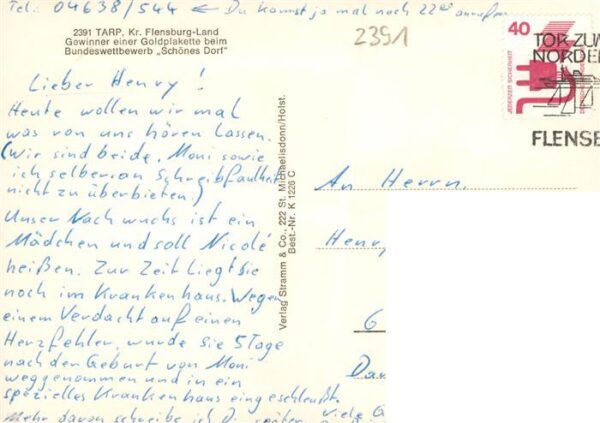 Tel.: 04638/544 ← Du kannst ja mal nach 22°° anrufen
2391 TARP, Kr. Flensburg-Land
Gewinner einer Goldplakette beim
Bundeswettbewerb „Schönes Dorf“
2391
40
JEDERZEIT SICHERHEIT
TOR ZUM
NORDE
FLENSB
Lieber Henry!
Heute wollen wir mal
was von uns hören lassen.
(Wir sind beide, Moni sowie
ich selber an Schreibfaulheit
nicht zu überbieten.)
Unser Nachwuchs ist ein
Mädchen und soll Nicole
heißen. Zur Zeit liegt sie
noch im Krankenhaus. Wegen
einem Verdacht auf einen
Herzfehler, wurde sie 5 Tage
nach der Geburt von Moni
weggenommen und in ein
spezielles Krankenhaus eingeschleust.
Mehr davon schreibe ich Dir später. Viele G
Verlag Stramm & Co., 222 St. Michaelisdonn/Holst.
Best.-Nr. K 1226 C
An Herrn
Henry
6
Da